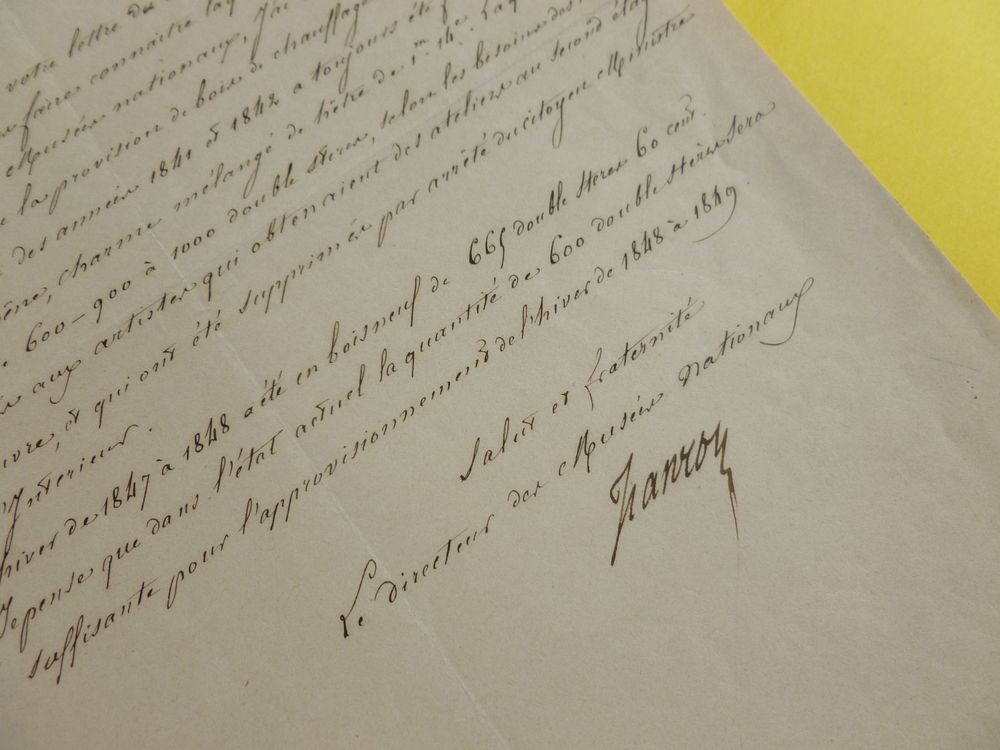 votre lettre du
faire connaitre la q
Musées nationaux, J'ai
la provision de bois de chauffage
des années 1841 et 1842 a toujours été
charme mélangé de hêtre de 1m 14. La q
600 - 900 à 1000 double stères, selon les besoins des
aux artistes qui obtenaient des ateliers au second étag
uvre, et qui ont été supprimés par arrêté du citoyen Ministre
Intérieur.
hiver de 1847 à 1848 a été en bois neuf de 665 double stères 60 cent.
Je pense que dans l'état actuel la quantité de 600 double stères sera
suffisante pour l'approvisionnement de l'hiver de 1848 à 1849.
Salut et fraternité
Le directeur des Musées nationaux
Jeanron